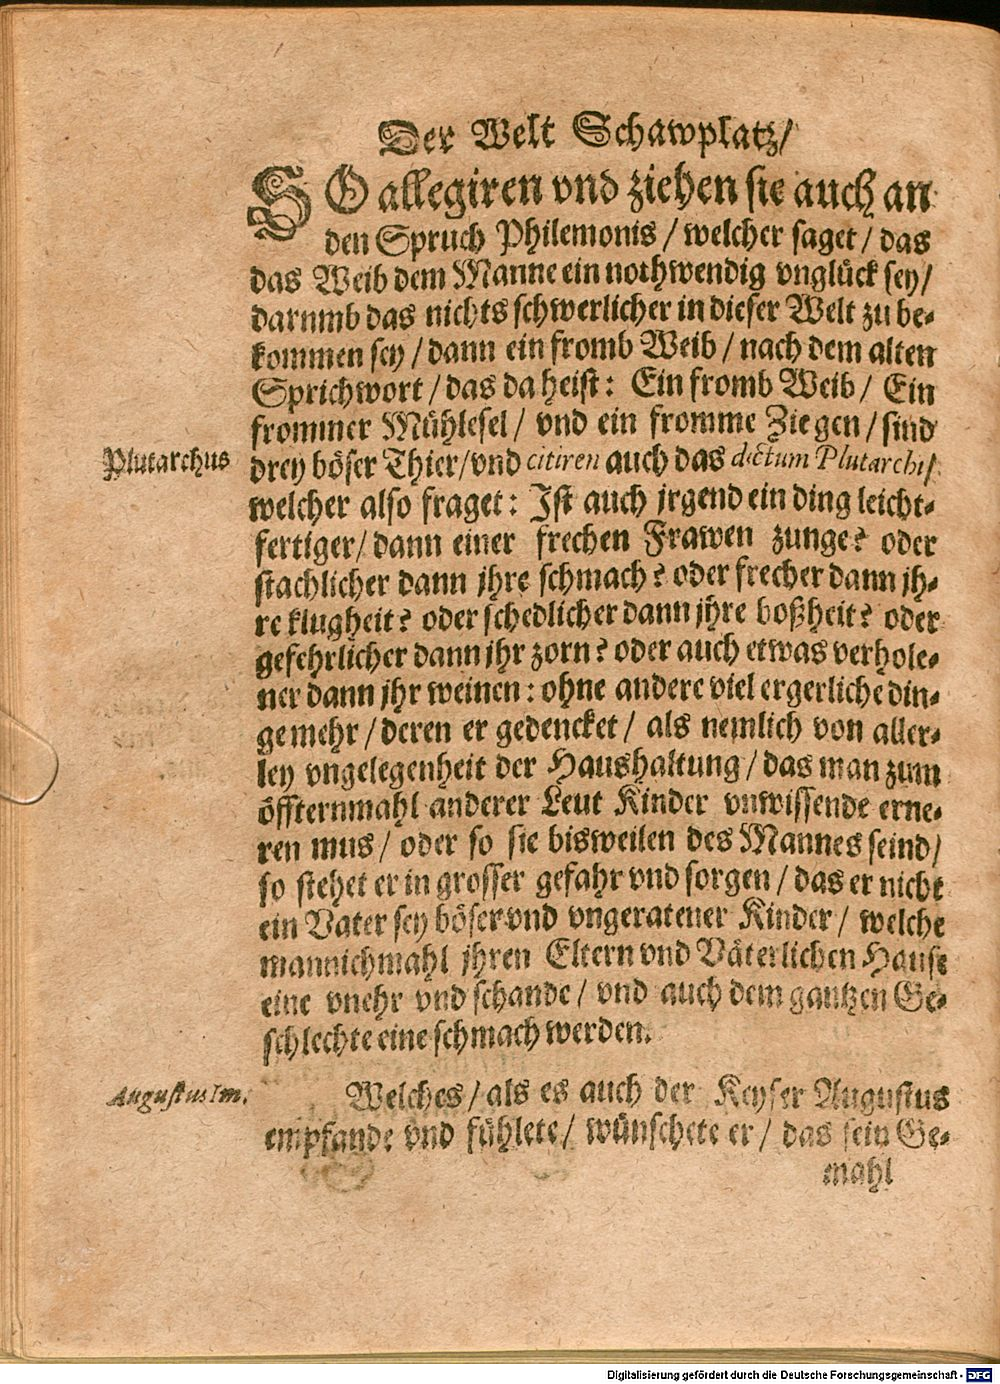 Der Welt Schawplatz/
SO allegiren vnd ziehen sie auch an
den Spruch Philemonis / welcher saget / das
das Weib dem Manne ein nothwendig vnglück sey/
darumb das nichts schwerlicher in dieser Welt zu be-
kommen sey / dann ein fromb Weib / nach dem alten
Sprichwort / das da heist: Ein fromb Weib / Ein
frommer Mühlesel / vnd ein fromme Ziegen / sind
Plutarchus
drey böser Thier/vnd citiren auch das dictum Plutarchi/
welcher also fraget: Ist auch jrgend ein ding leicht-
fertiger/ dann einer frechen Frawen zunge? oder
stachlicher dann jhre schmach? oder frecher dann jh-
re klugheit? oder schedlicher dann jhre boßheit? oder
gefehrlicher dann jhr zorn? oder auch etwas verhole-
ner dann jhr weinen: ohne andere viel ergerliche din-
ge mehr / deren er gedencket / als nemlich von aller-
ley vngelegenheit der Haushaltung / das man zum
öffternmahl anderer Leut Kinder vnwissende erne-
ren mus / oder so sie bisweilen des Mannes seind/
so stehet er in grosser gefahr vnd sorgen / das er nicht
ein Vater sey böser vnd vngeratener Kinder / welche
mannichmahl jhren Eltern vnd Väterlichen Hause
eine vnehr vnd schande / vnd auch dem gantzen Ge-
schlechte eine schmach werden.
Augustus Im.
Welches / als es auch der Keyser Augustus
empfande vnd fühlete / wünschete er / das sein Ge-
mahl
Digitalisierung gefördert durch die Deutsche Forschungsgemeinschaft - DFG